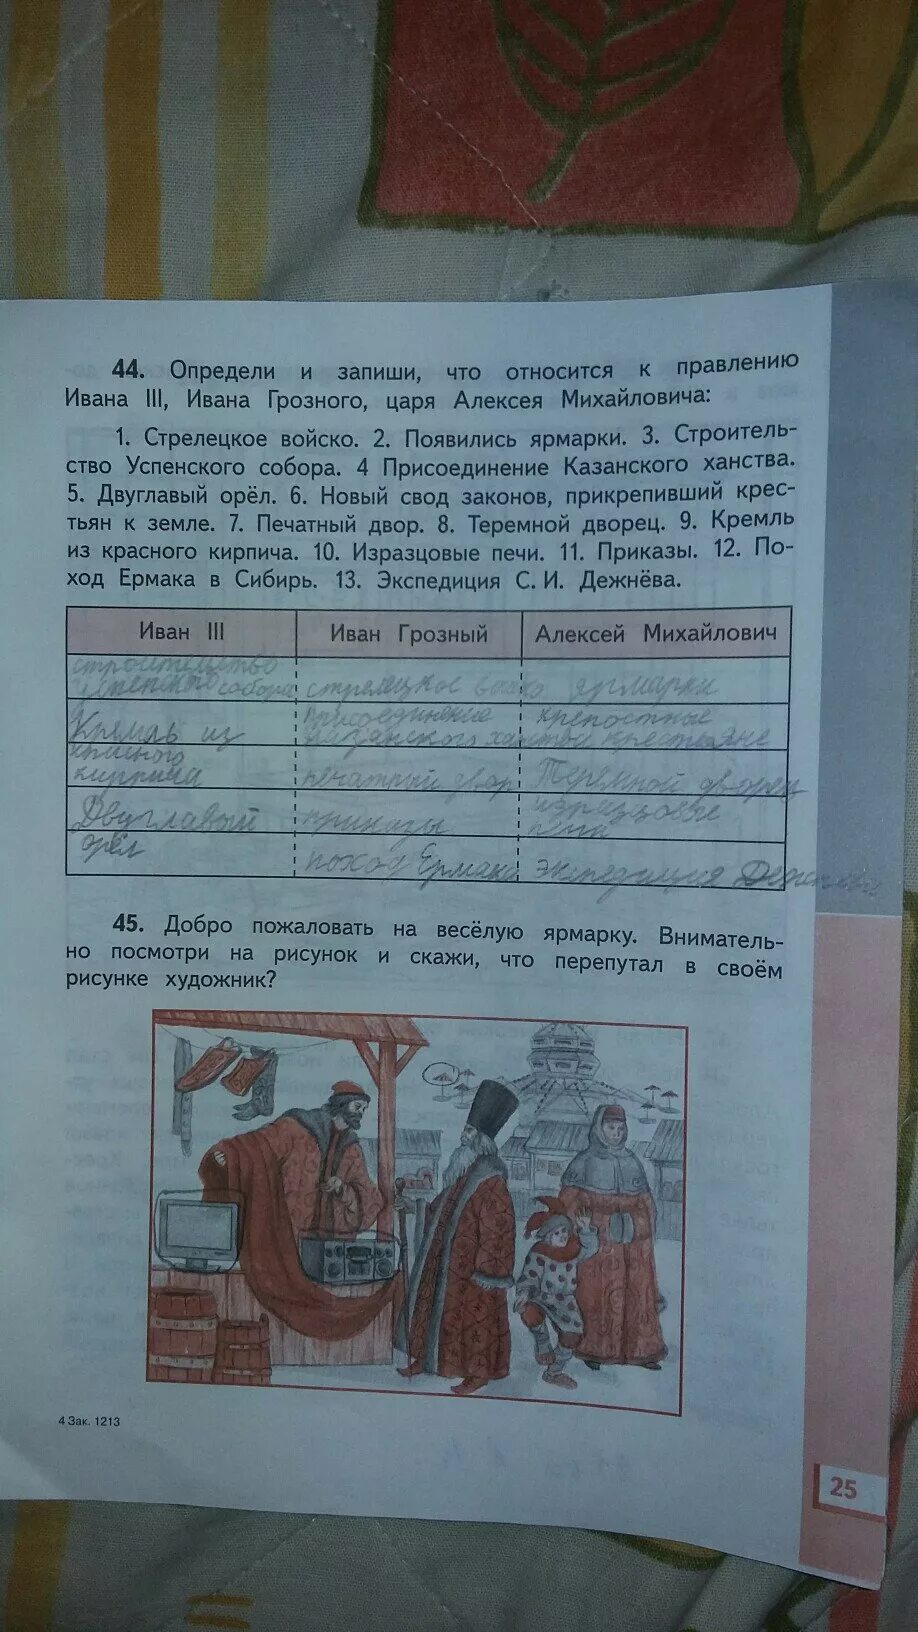 44. Определи и запиши, что относится к правлению
Ивана III, Ивана Грозного, царя Алексея Михайловича:
1. Стрелецкое войско. 2. Появились ярмарки. 3. Строитель-
ство Успенского собора. 4 Присоединение Казанского ханства.
5. Двуглавый орёл. 6. Новый свод законов, прикрепивший крес-
тьян к земле. 7. Печатный двор. 8. Теремной дворец. 9. Кремль
из красного кирпича. 10. Изразцовые печи. 11. Приказы. 12. По-
ход Ермака в Сибирь. 13. Экспедиция С. И. Дежнёва.
Иван III Иван Грозный Алексей Михайлович
строительство
Успенского собора стрелецкое войско ярмарки
присоединение крепостные
Кремль из казанского ханства крестьяне
красного
кирпича печатный двор Теремной дворец
изразцовые
Двуглавый приказы печи
орёл
поход Ермака экспедиция Дежнёва
45. Добро пожаловать на весёлую ярмарку. Вниматель-
но посмотри на рисунок и скажи, что перепутал в своём
рисунке художник?
4 Зак. 1213
25